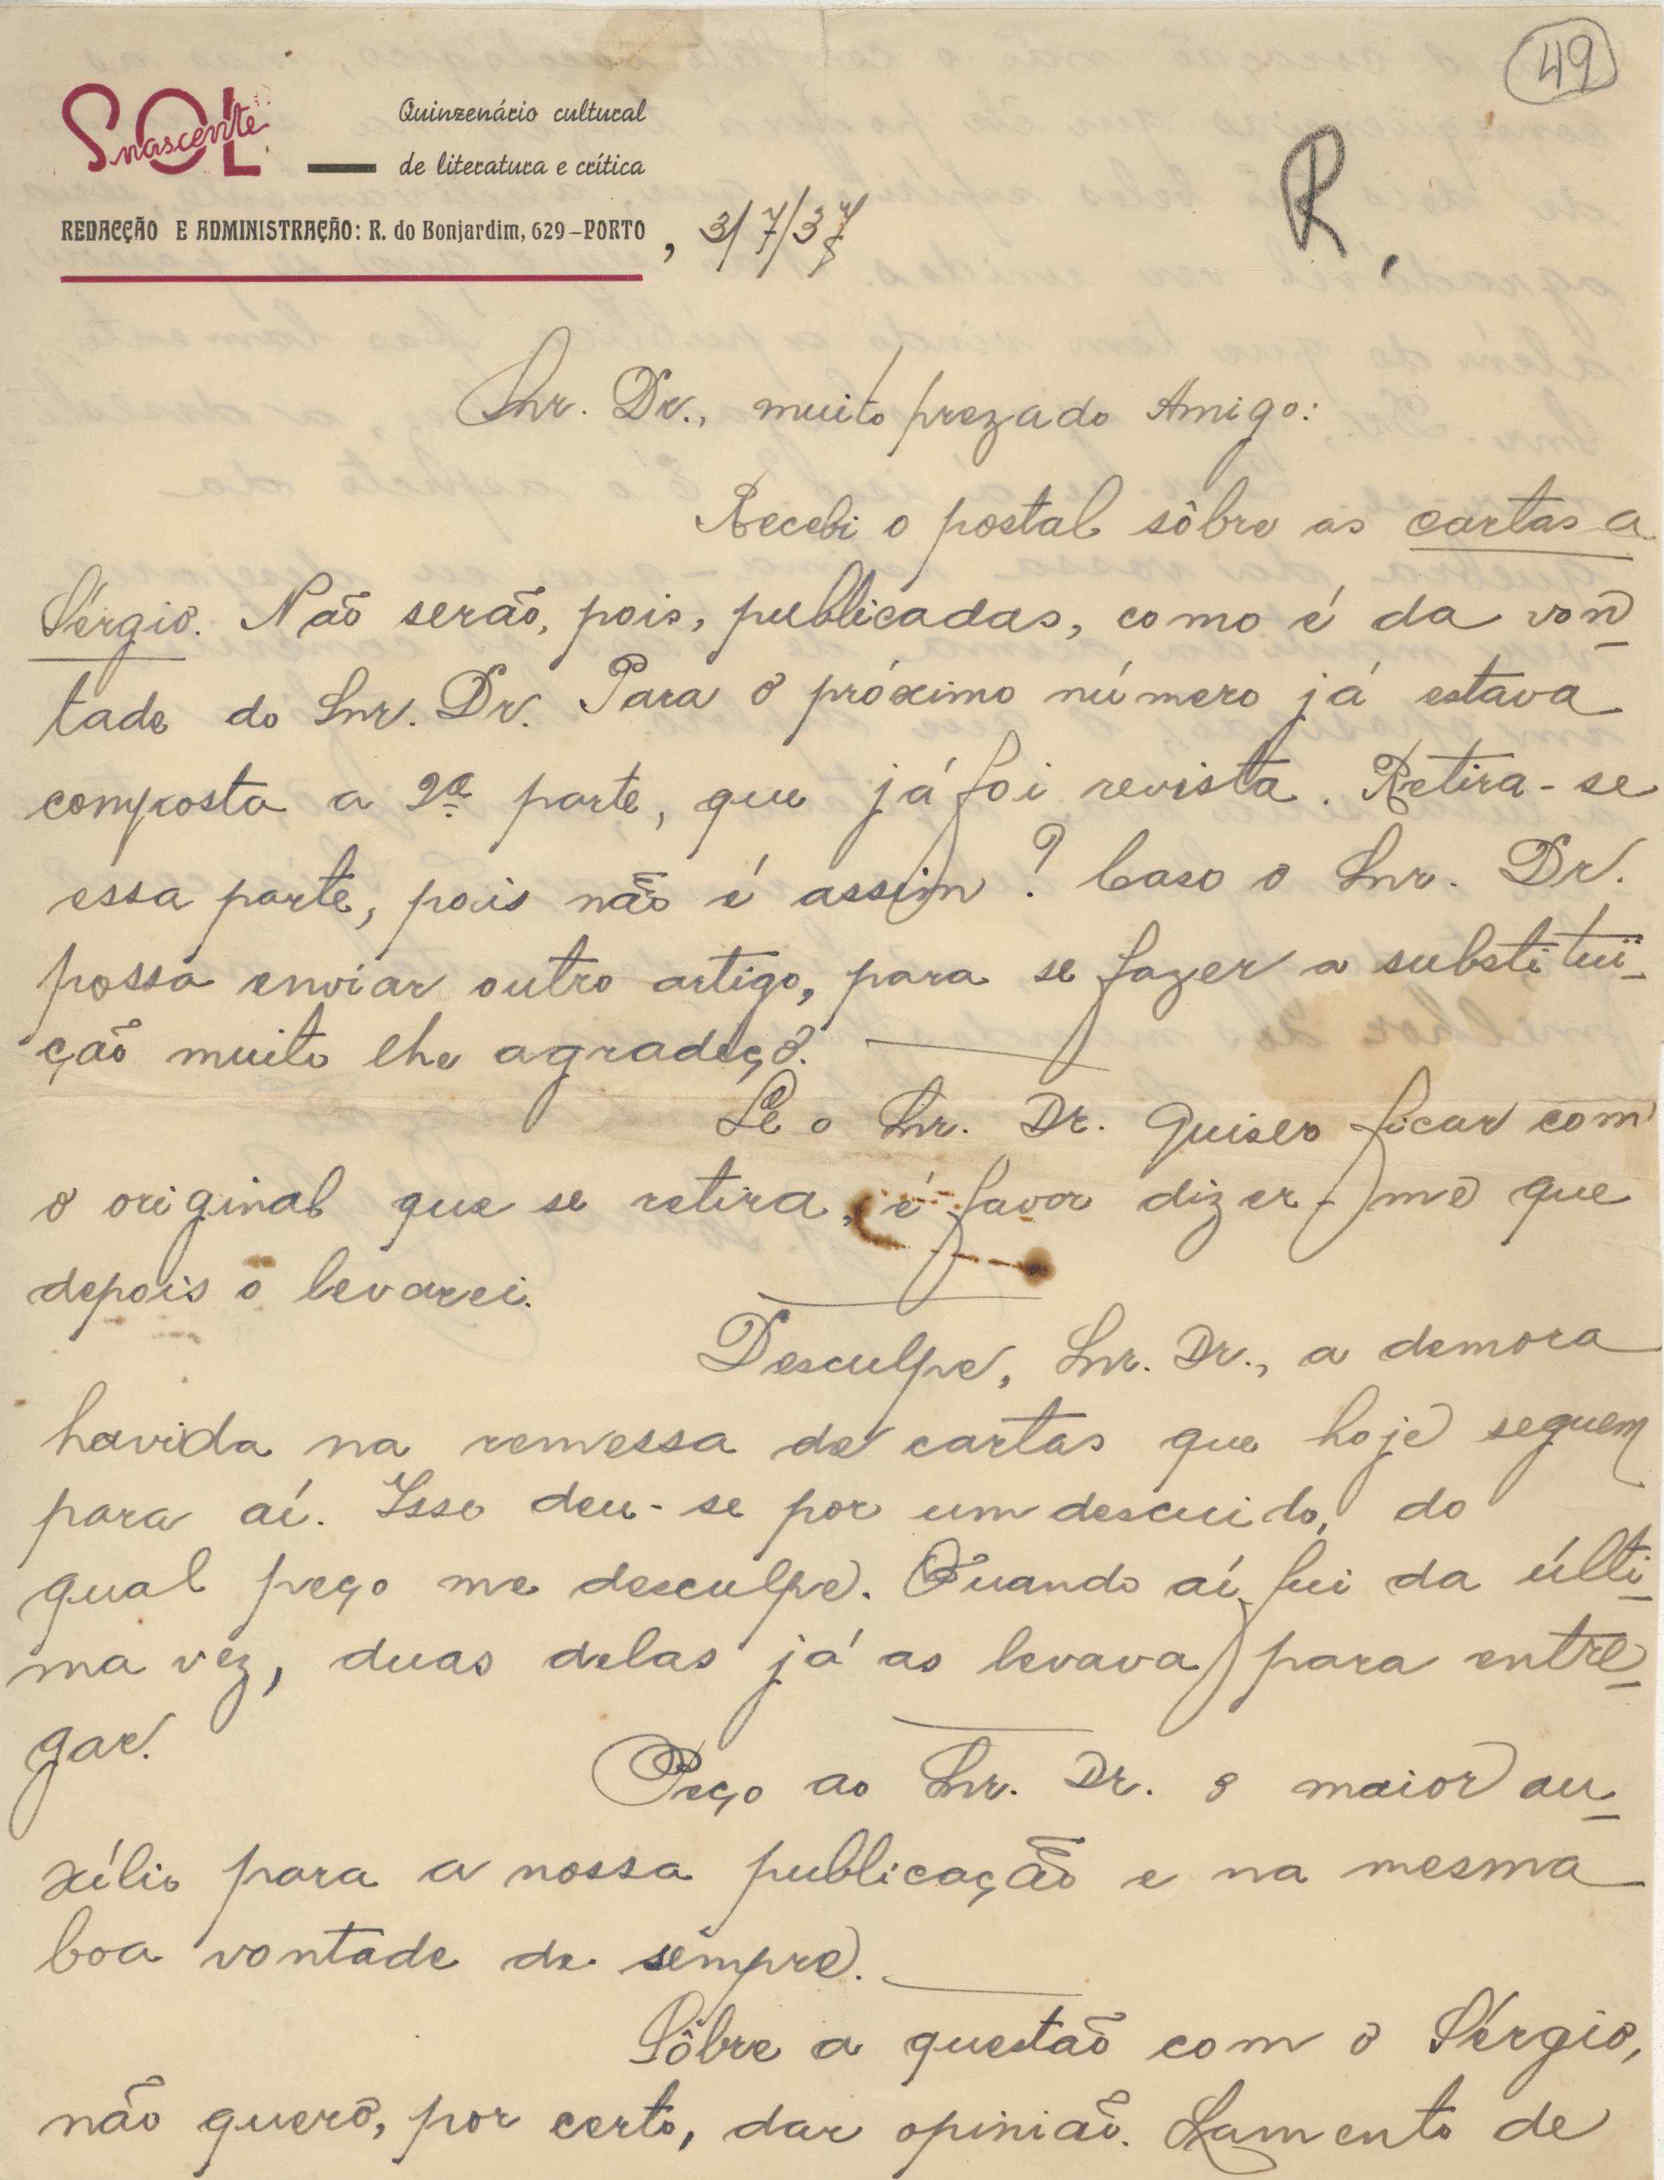 49
SOL nascente
Quinzenário cultural
de literatura e crítica
R.
REDACÇÃO E ADMINISTRAÇÃO: R. do Bonjardim, 629-PORTO, 3/7/37
Snr. Dr., muito prezado Amigo:
Recebi o postal sôbre as cartas a
Sérgio. Não serão, pois, publicadas, como é da von-
tade do Snr. Dr. Para o próximo número já estava
composta a 2ª parte, que já foi revista. Retira-se
essa parte, pois não é assim? Caso o Snr. Dr.
possa enviar outro artigo, para se fazer a substituï-
ção muito lhe agradeço.
Se o Snr. Dr. quiser ficar com
o original que se retira, é favor dizer-me que
depois o levarei.
Desculpe, Snr. Dr., a demora
havida na remessa de cartas que hoje seguem
para aí. Isso deu-se por um descuido, do
qual peço me desculpe. Quando aí fui da últi-
ma vez, duas delas já as levava para entre-
gar.
Peço ao Snr. Dr. o maior au-
xílio para a nossa publicação e na mesma
boa vontade de sempre.
Sôbre a questão com o Sérgio,
não quero, por certo, dar opinião. Lamento de